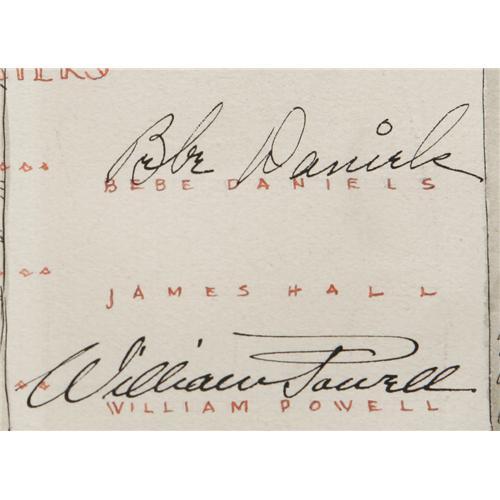 Bebe Daniels
BEBE DANIELS
JAMES HALL
William Powell
WILLIAM POWELL